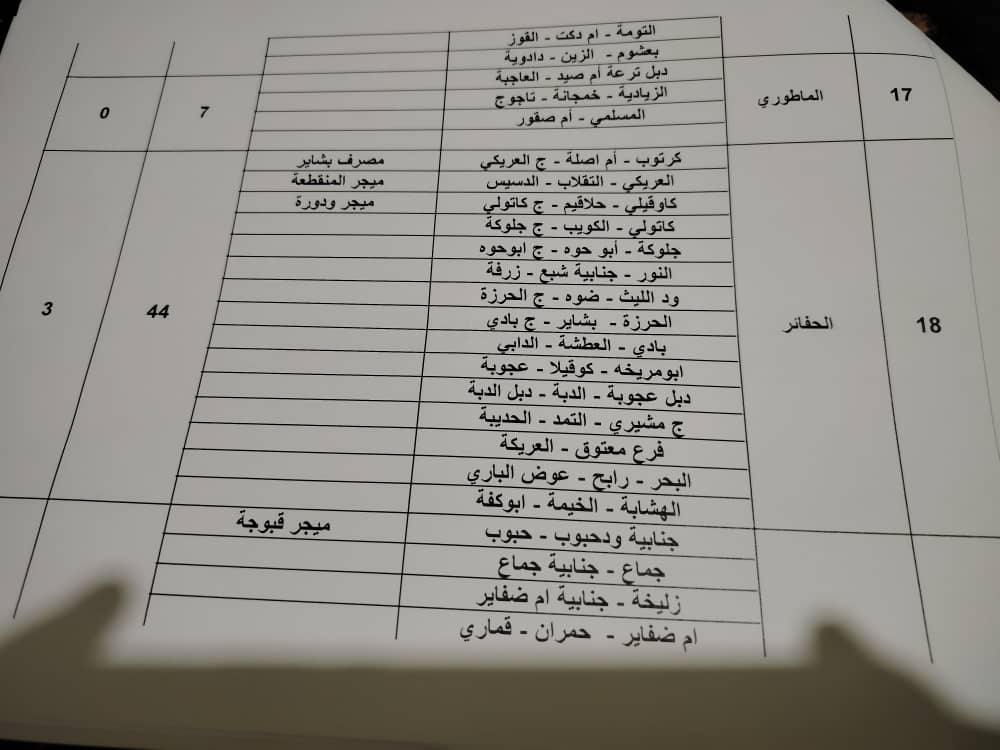 التومة - ام دكت - القوز
بعشوم - الزين - دادوية
دبل ترعة أم صيد - العاجبة
17 الماطوري الزيادية - خمجانة - تاجوج 7 0
المسلمي - أم صقور
كرتوب - أم اصلة - ج العريكي مصرف بشاير
العريكي - التقلاب - الدسيس ميجر المنقطعة
كاوقيلي - حلاقيم - ج كاتولي ميجر ودورة
كاتولي - الكويب - ج جلوكة
جلوكة - أبو حوه - ج ابوحوه
النور - جنابية شبع - زرفة
ود الليث - ضوه - ج الحرزة
18 الحفائر الحرزة - بشاير - ج بادي 44 3
بادي - العطشة - الدابي
ابومريخه - كوقيلا - عجوبة
دبل عجوبة - الدبة - دبل الدبة
ج مشيري - التمد - الحديبة
فرع معتوق - العريكة
البحر - رابح - عوض الباري
الهشابة - الخيمة - ابوكفة
جنابية ودحبوب - حبوب ميجر قبوجة
جماع - جنابية جماع
زليخة - جنابية ام ضفاير
ام ضفاير - حمران - قماري